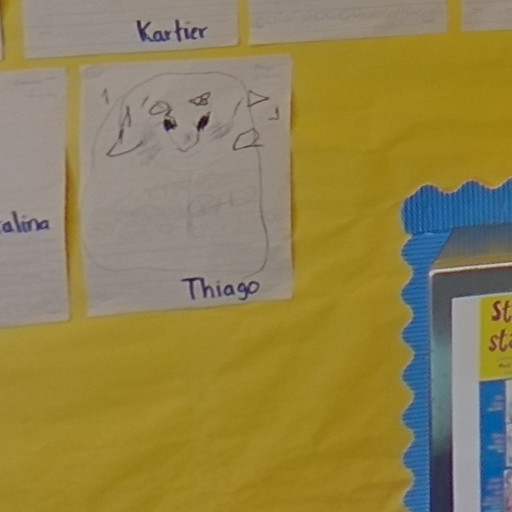 Kartier
alina
Thiago
St
sta